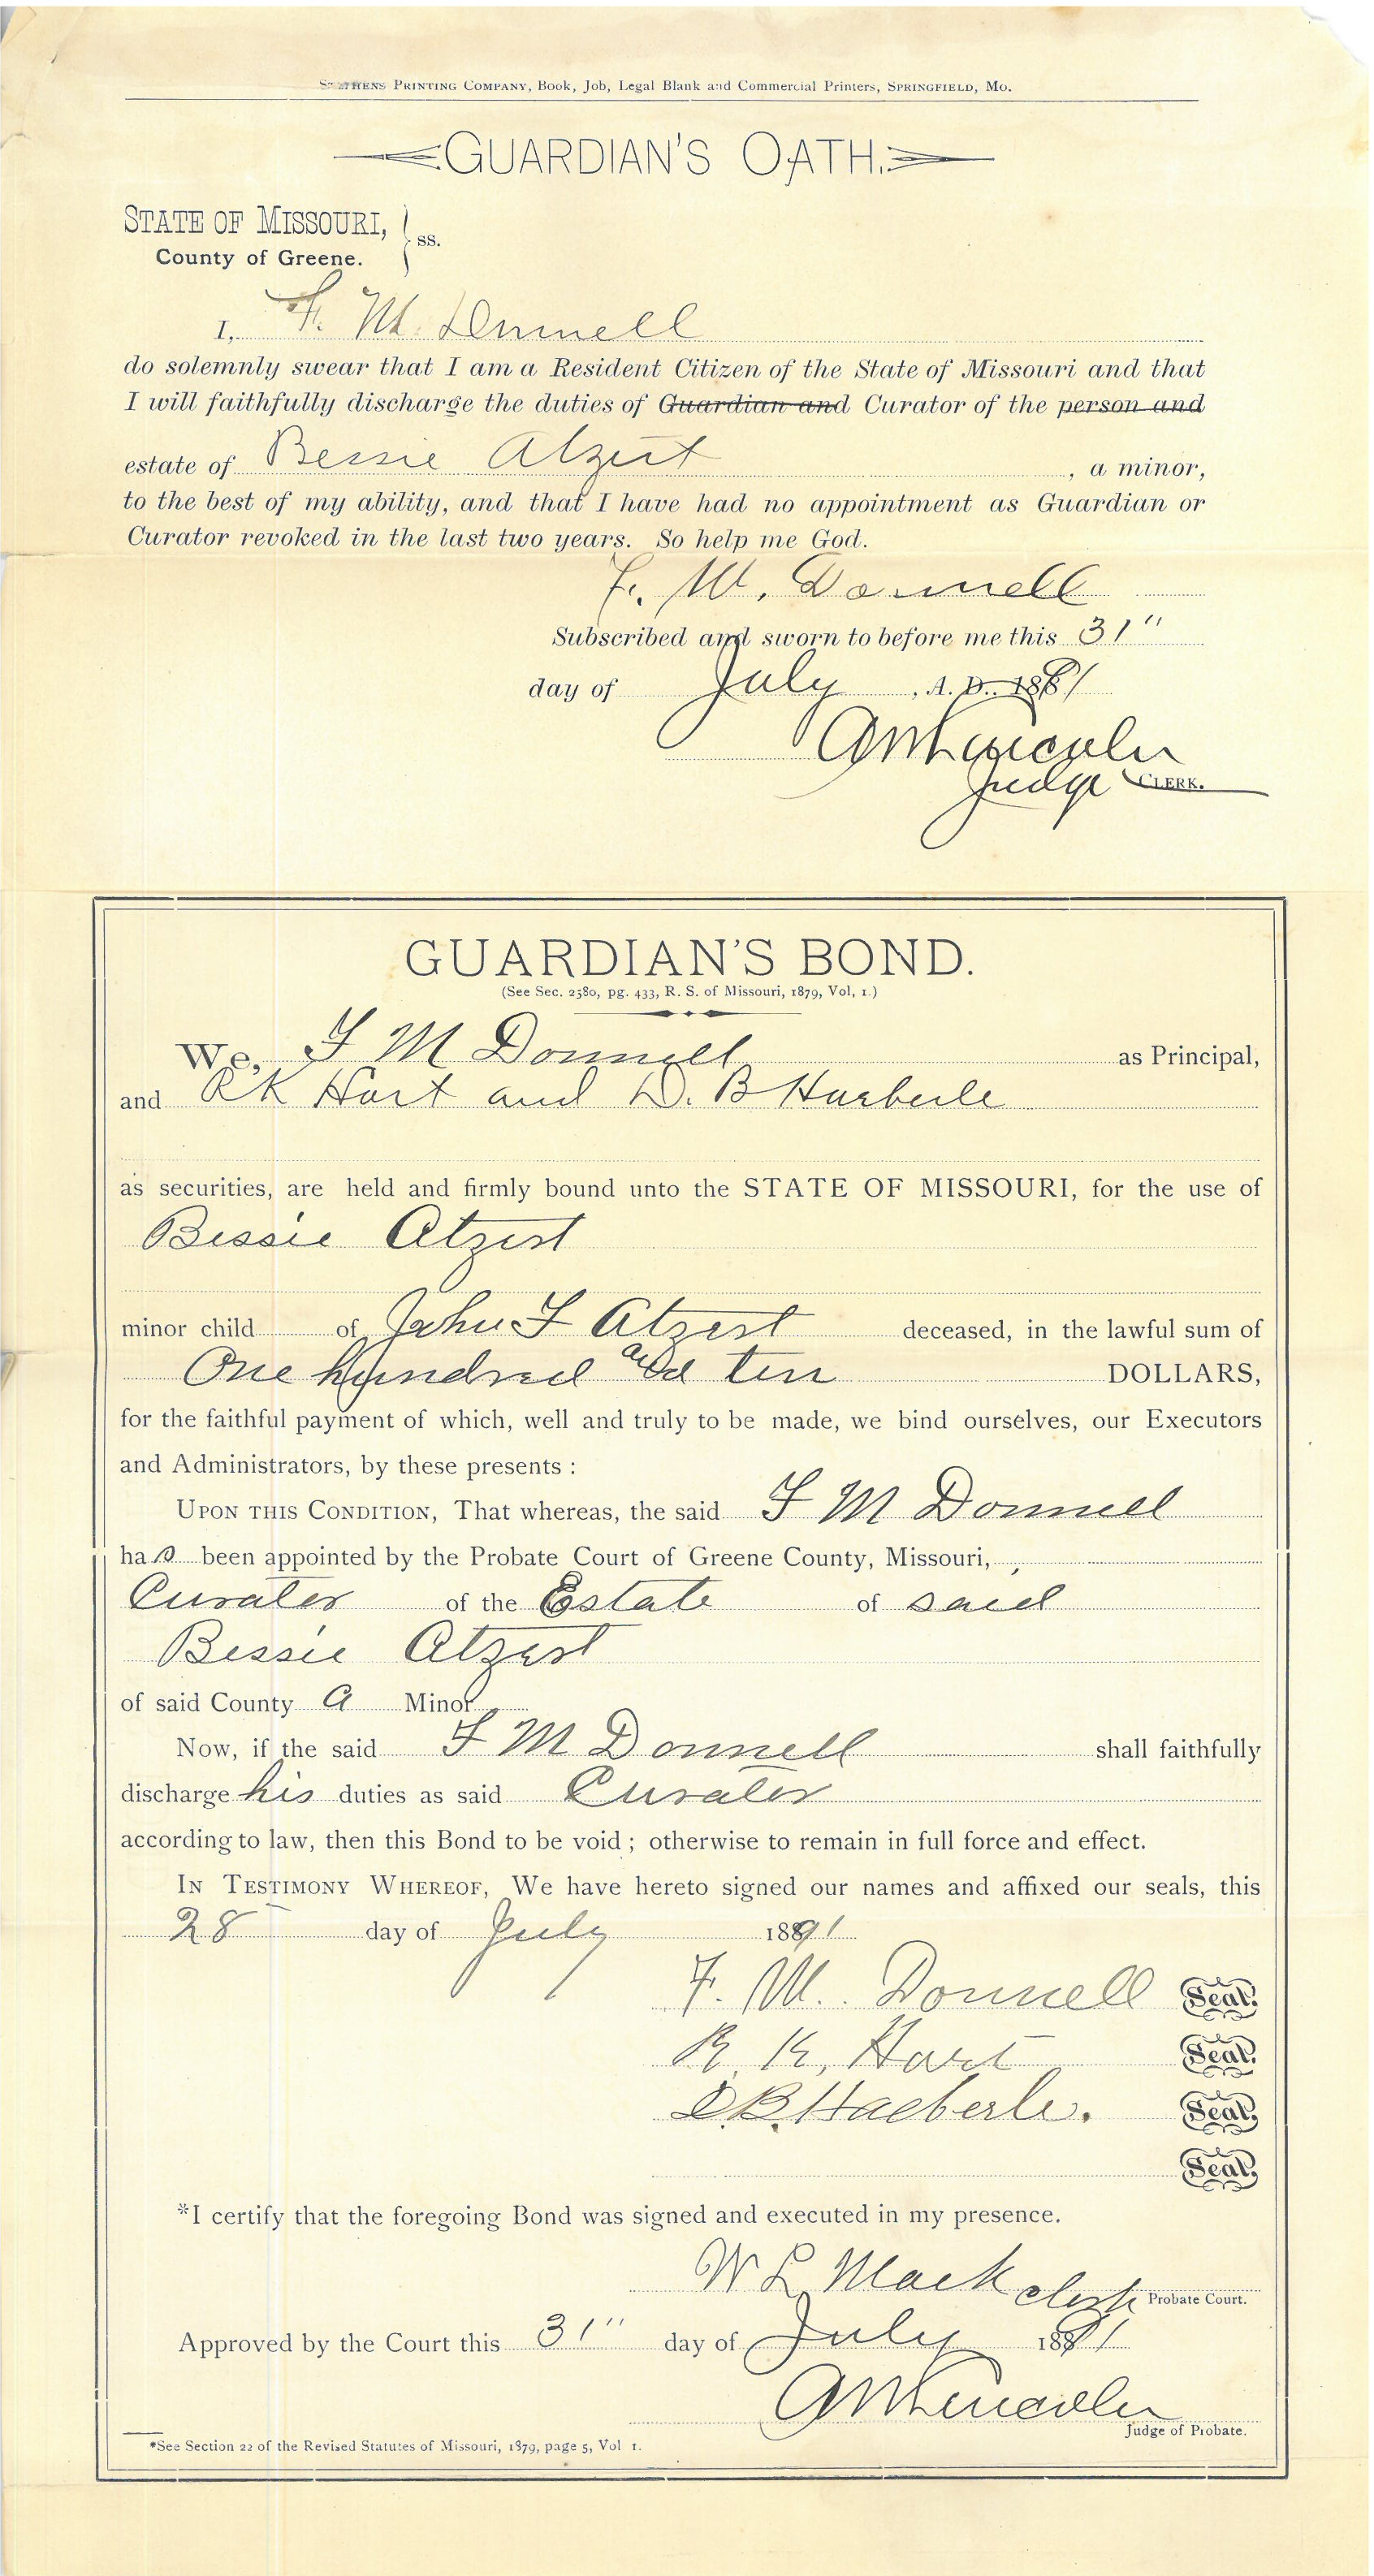 STEPHENS PRINTING COMPANY, Book, Job, Legal Blank and Commercial Printers, SPRINGFIELD, MO.
GUARDIAN'S OATH.
STATE OF MISSOURI, } ss.
County of Greene.
I, F. M. Donnell
do solemnly swear that I am a Resident Citizen of the State of Missouri and that
I will faithfully discharge the duties of Guardian and Curator of the person and
estate of Bessie Atzert, a minor,
to the best of my ability, and that I have had no appointment as Guardian or
Curator revoked in the last two years. So help me God.
F. M. Donnell
Subscribed and sworn to before me this 31"
day of July, A. D. 1891
A M Lincoln
Judge CLERK.
GUARDIAN'S BOND.
(See Sec. 2580, pg. 433, R. S. of Missouri, 1879, Vol, 1.)
We, F M Donnell as Principal,
and R K Hart and D. B Haeberle
as securities, are held and firmly bound unto the STATE OF MISSOURI, for the use of
Bessie Atzert
minor child of John F Atzert deceased, in the lawful sum of
One hundred and ten DOLLARS,
for the faithful payment of which, well and truly to be made, we bind ourselves, our Executors
and Administrators, by these presents:
UPON THIS CONDITION, That whereas, the said F M Donnell
has been appointed by the Probate Court of Greene County, Missouri,
Curator of the Estate of said
Bessie Atzert
of said County a Minor
Now, if the said F M Donnell shall faithfully
discharge his duties as said Curator
according to law, then this Bond to be void; otherwise to remain in full force and effect.
IN TESTIMONY WHEREOF, We have hereto signed our names and affixed our seals, this
28 day of July 1891
F. M. Donnell Seal.
R. K. Hart Seal.
D. B. Haeberle. Seal.
Seal.
*I certify that the foregoing Bond was signed and executed in my presence.
W L Mack clerk Probate Court.
Approved by the Court this 31" day of July 1891
A M Lincoln
Judge of Probate.
*See Section 22 of the Revised Statutes of Missouri, 1879, page 5, Vol 1.